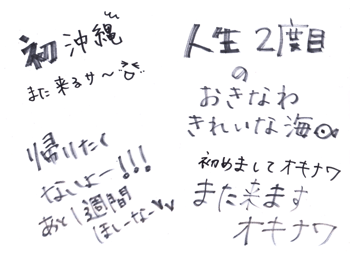 初沖縄
また来るサ〜
人生2度目
の
おきなわ
きれいな海
帰りたく
ないよー!!!
あと1週間
ほしーなー
初めましてオキナワ
また来ます
オキナワ